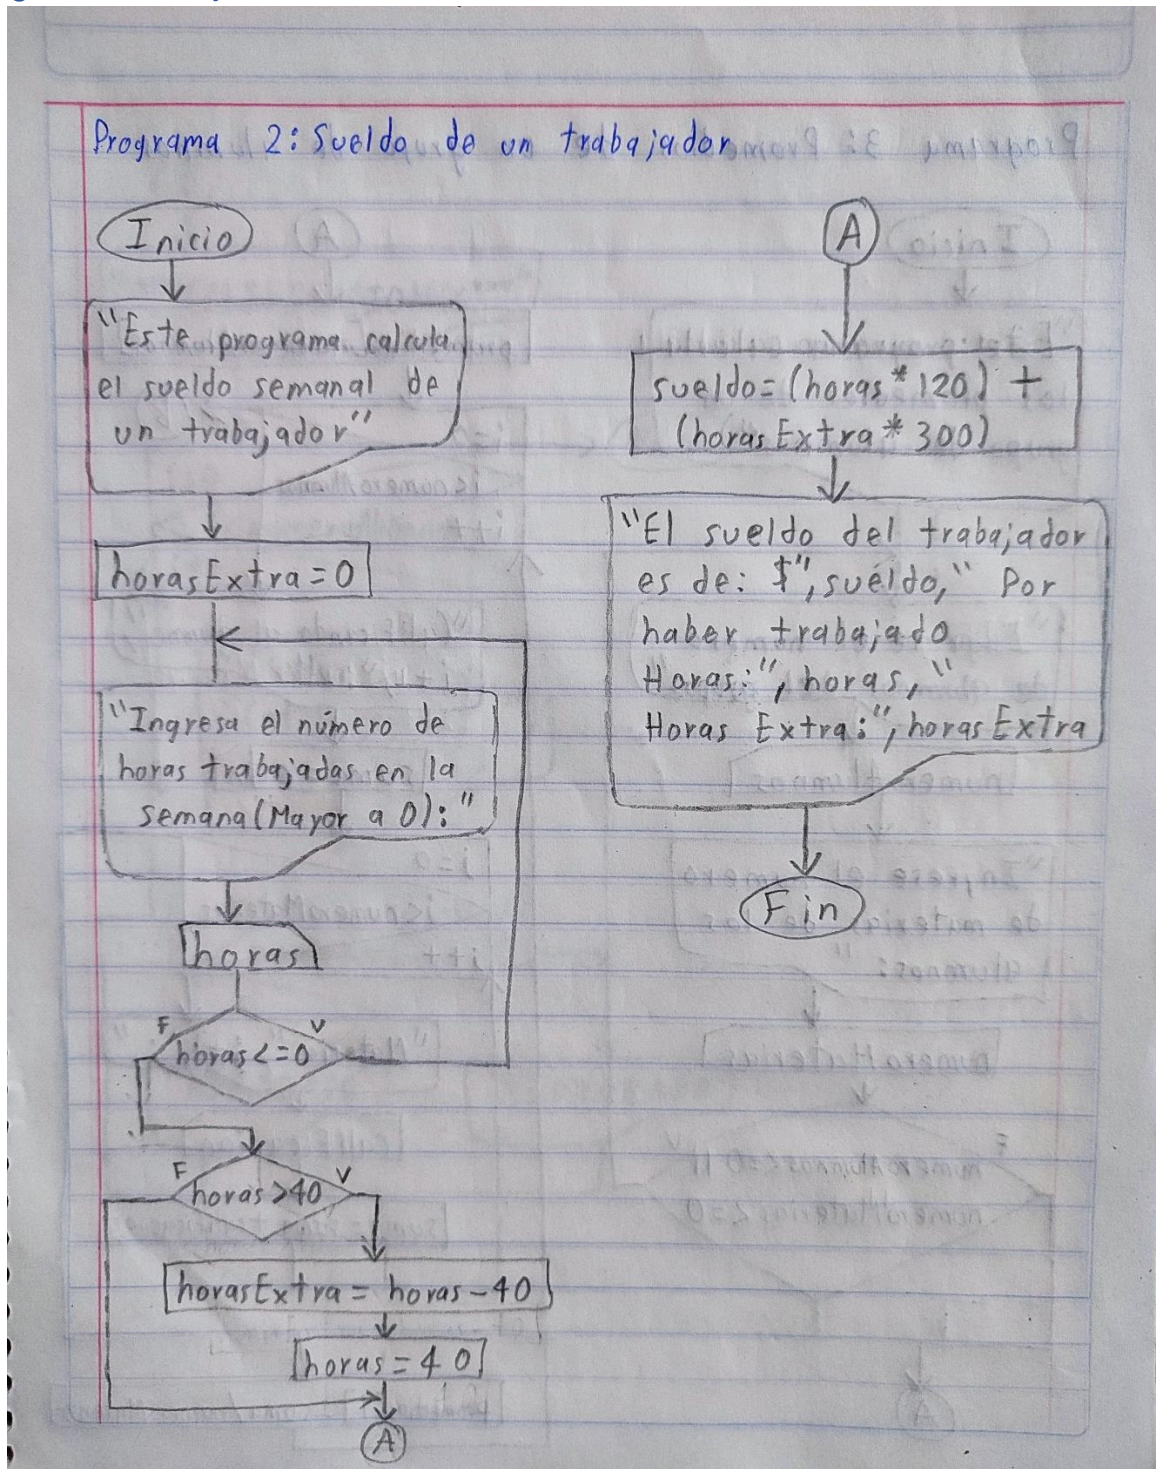 Programa 2: Sueldo de un trabajador
Inicio
"Este programa calcula
el sueldo semanal de
un trabajador"
horasExtra=0
"Ingresa el número de
horas trabajadas en la
semana(Mayor a 0):"
horas
F
V
horas<=0
F
V
horas>40
horasExtra= horas-40
horas=40
A
A
sueldo=(horas*120) +
(horasExtra*300)
"El sueldo del trabajador
es de: $",sueldo," Por
haber trabajado
Horas:",horas,"
Horas Extra:",horasExtra
Fin